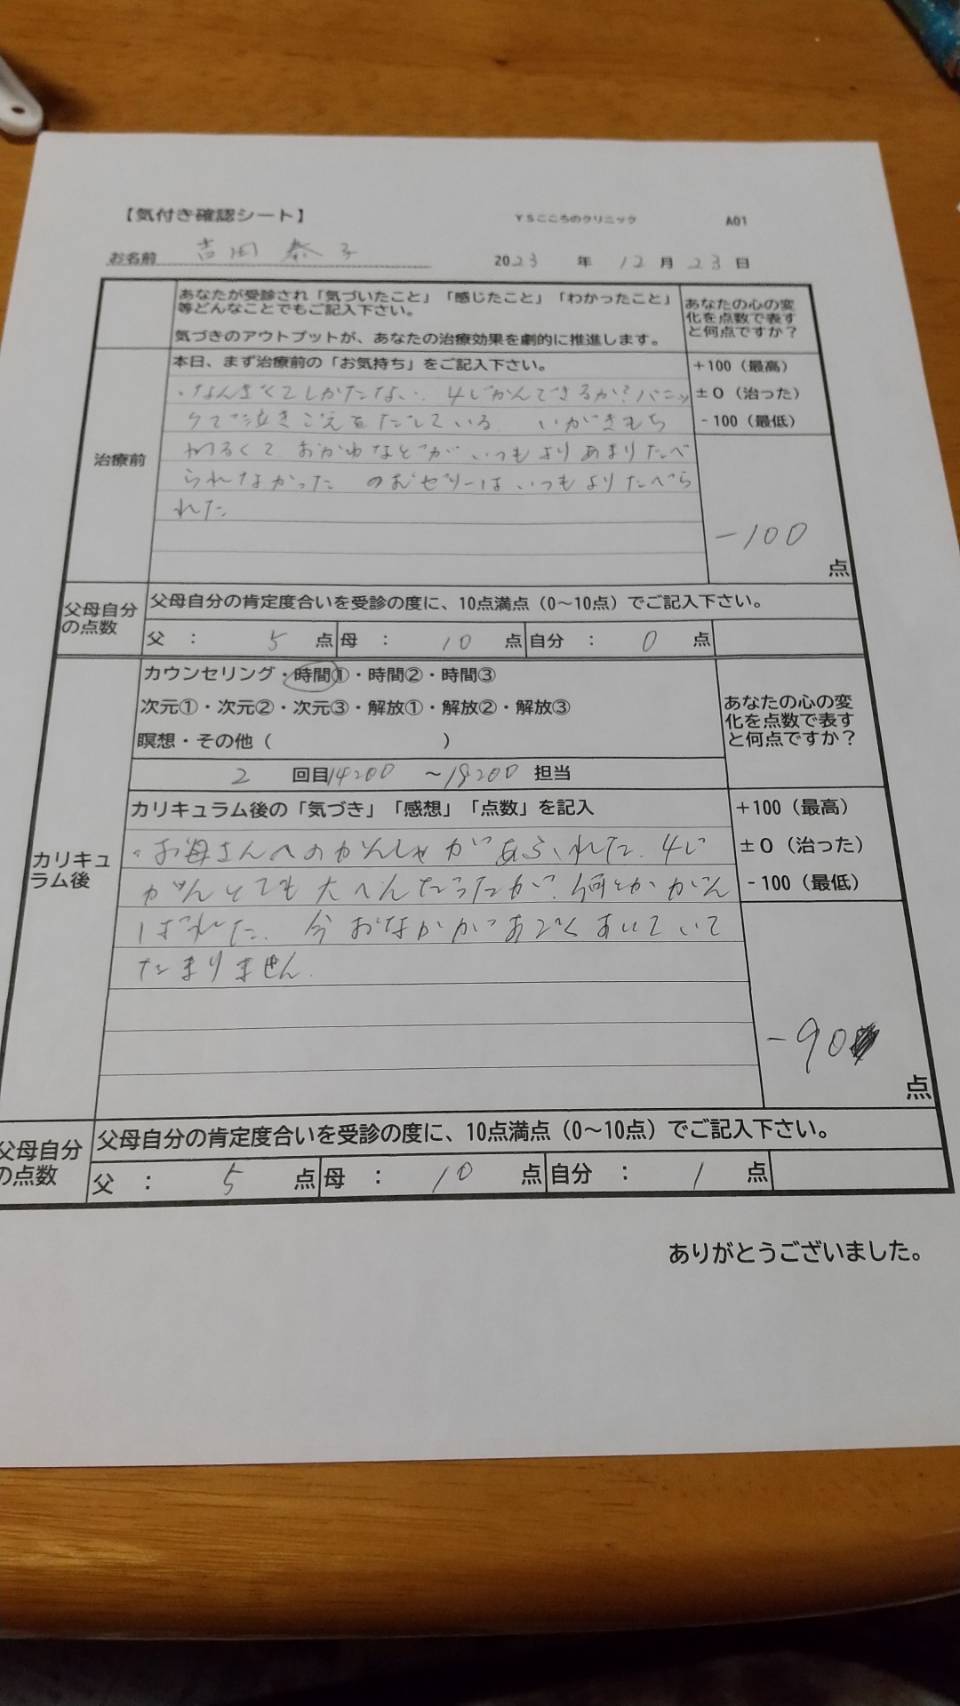 【気付き確認シート】 YSこころのクリニック A01
お名前 吉田 泰子 2023 年 12 月 23 日
あなたが受診され「気づいたこと」「感じたこと」「わかったこと」
等どんなことでもご記入下さい。
気づきのアウトプットが、あなたの治療効果を劇的に推進します。
あなたの心の変
化を点数で表す
と何点ですか？
治療前
本日、まず治療前の「お気持ち」をご記入下さい。
しかたない、4じかんできるか?パニッ
クで泣きごえをだしている いがきもち
わるくて おかゆなどが いつもよりあまりたべ
られなかった のむゼリーは いつもよりたべら
れた
+100（最高）
±0（治った）
-100（最低）
-100
点
父母自分
の点数
父母自分の肯定度合いを受診の度に、10点満点（0～10点）でご記入下さい。
父 ： 5 点 母 ： 10 点 自分 ： 0 点
カウンセリング・時間①・時間②・時間③
次元①・次元②・次元③・解放①・解放②・解放③
瞑想・その他（ ）
2 回目 ～ 担当
あなたの心の変
化を点数で表す
と何点ですか？
カリキュ
ラム後
カリキュラム後の「気づき」「感想」「点数」を記入
・お母さんへのかんしゃがあふれた、4じ
かんとても大へんだったが、何とかがん
ばれた、今おなかがすごくあいていて
たまりません。
+100（最高）
±0（治った）
-100（最低）
-90
点
父母自分
の点数
父母自分の肯定度合いを受診の度に、10点満点（0～10点）でご記入下さい。
父 ： 5 点 母 ： 10 点 自分 ： 1 点
ありがとうございました。